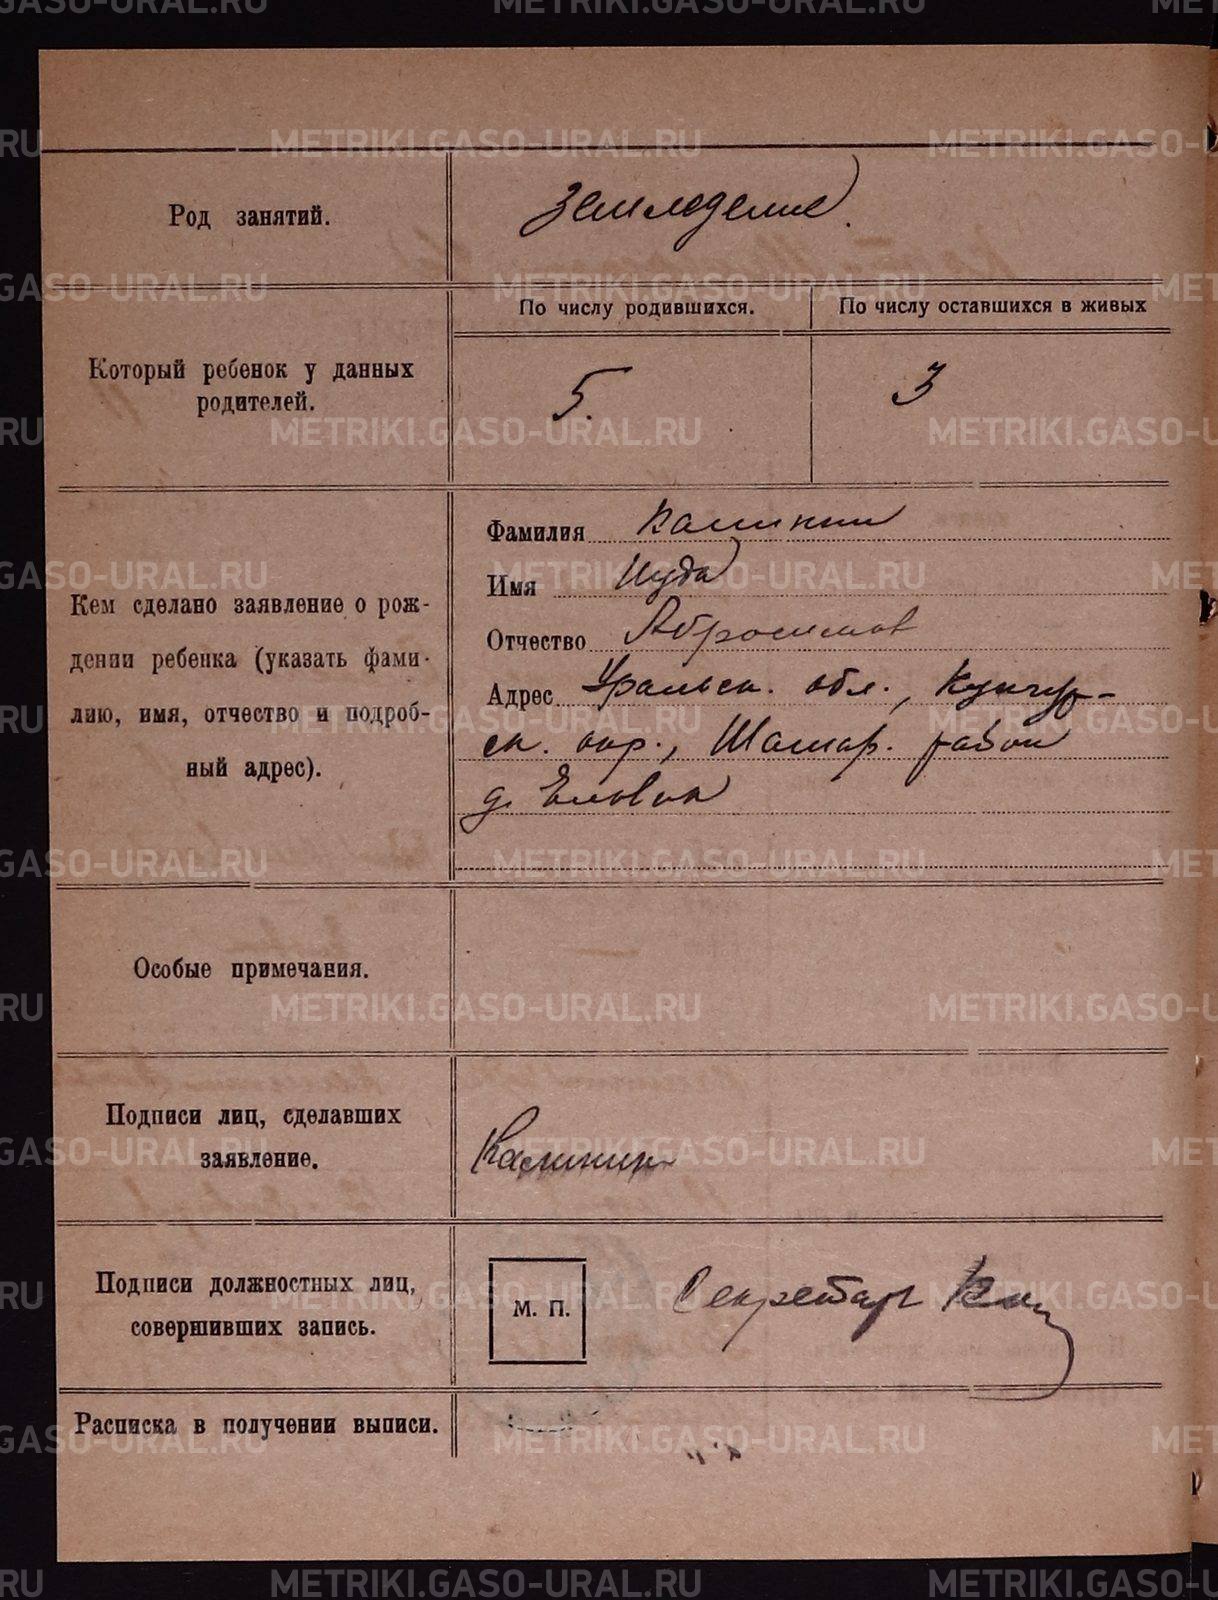 Род занятий.
Земледелие.
По числу родившихся.
По числу оставшихся в живых
Который ребенок у данных
родителей.
5.
3
Кем сделано заявление о рож-
дении ребенка (указать фами-
лию, имя, отчество и подроб-
ный адрес).
Фамилия Калинин
Имя Иуда
Отчество Абросимов
Адрес Уральск. обл., Кунгур-
ск. окр., Шамар. район
д. Еловка
Особые примечания.
Подписи лиц, сделавших
заявление.
Калинин
Подписи должностных лиц,
совершивших запись.
М. П.
Секретарь
Расписка в получении выписи.
METRIKI.GASO-URAL.RU